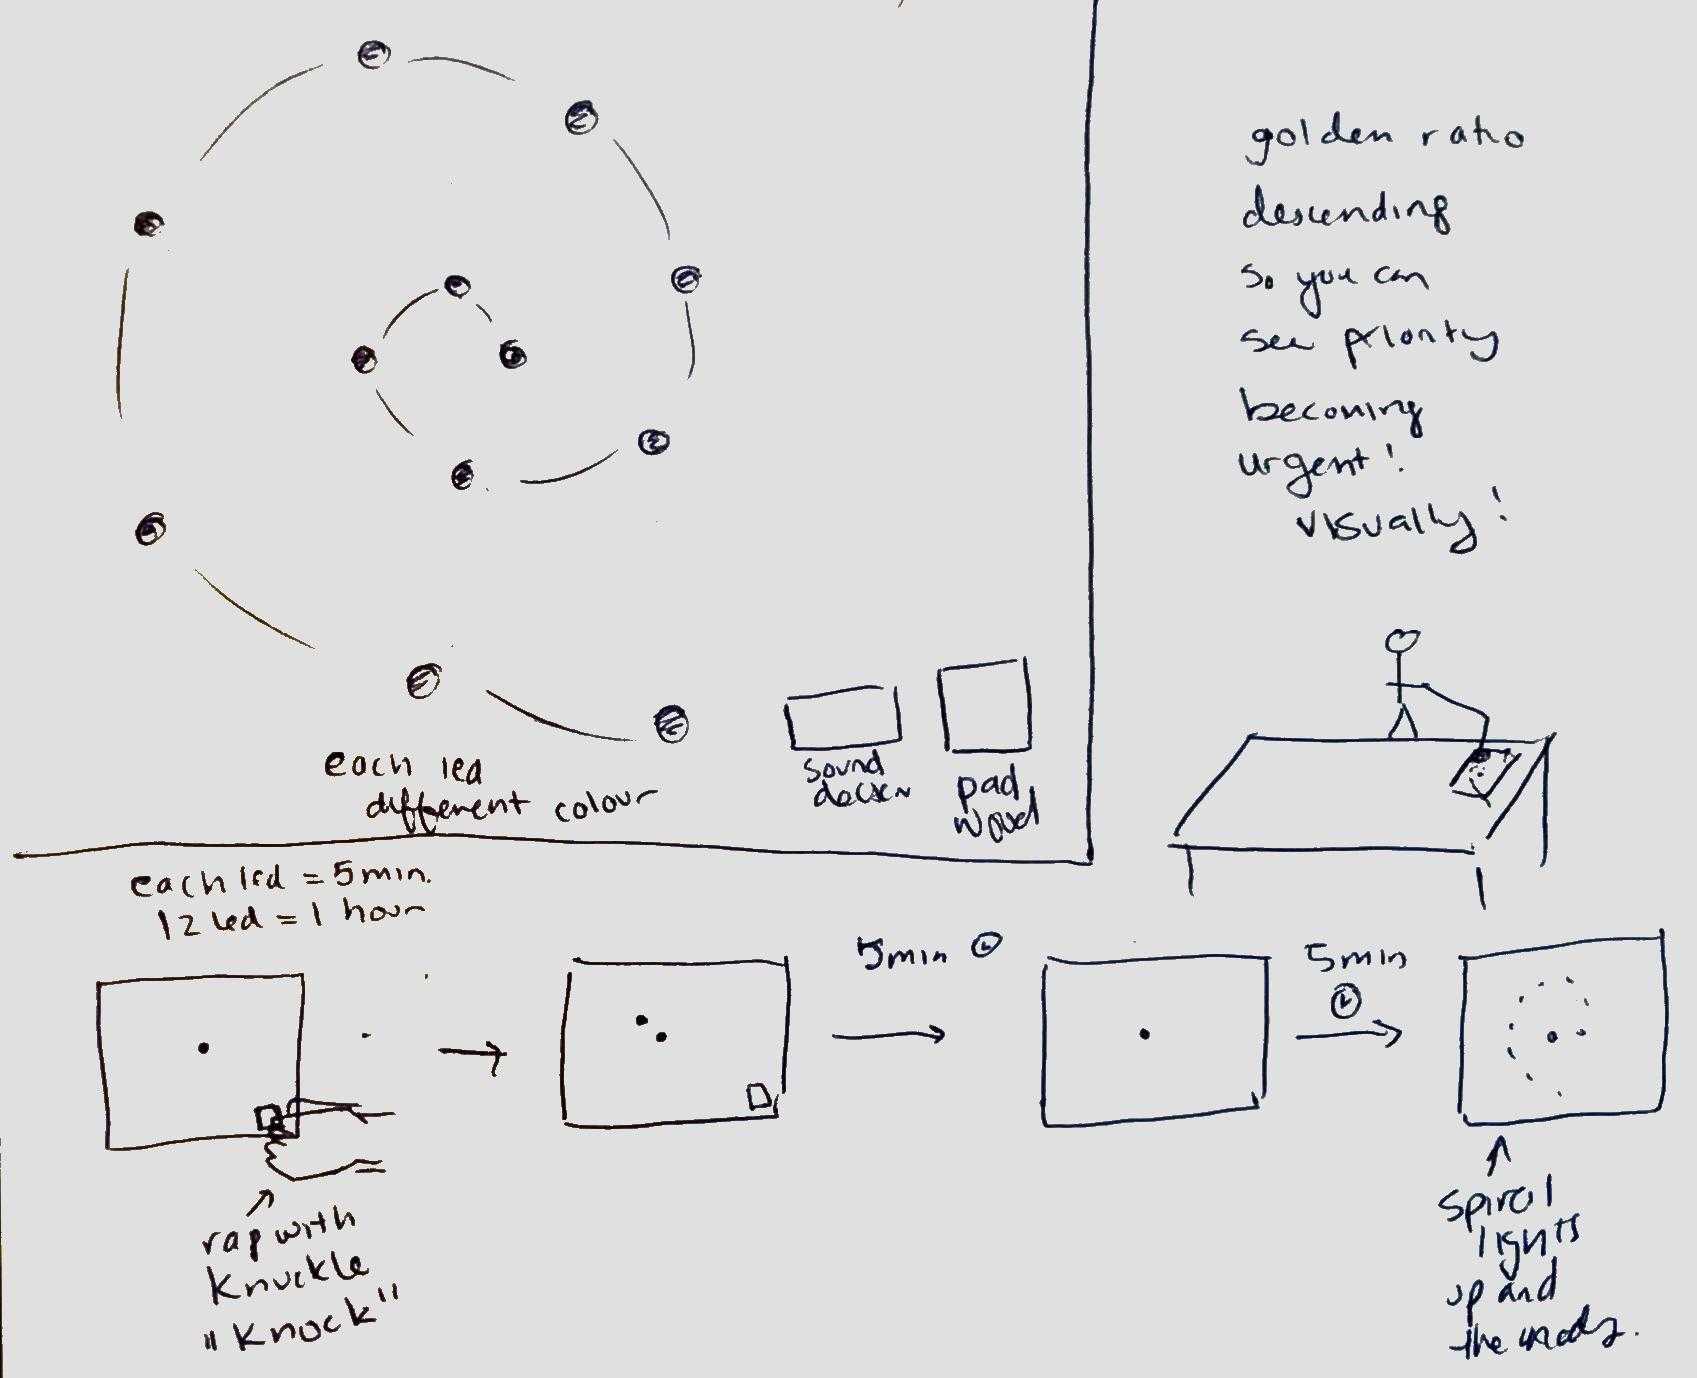 golden ratio
descending
so you can
see priority
becoming
urgent!
visually!
each led
different colour
sound
pad
wood
each led = 5 min.
12 led = 1 hour
5min
5min
rap with
knuckle
"knock"
spiral
lights
up and
the